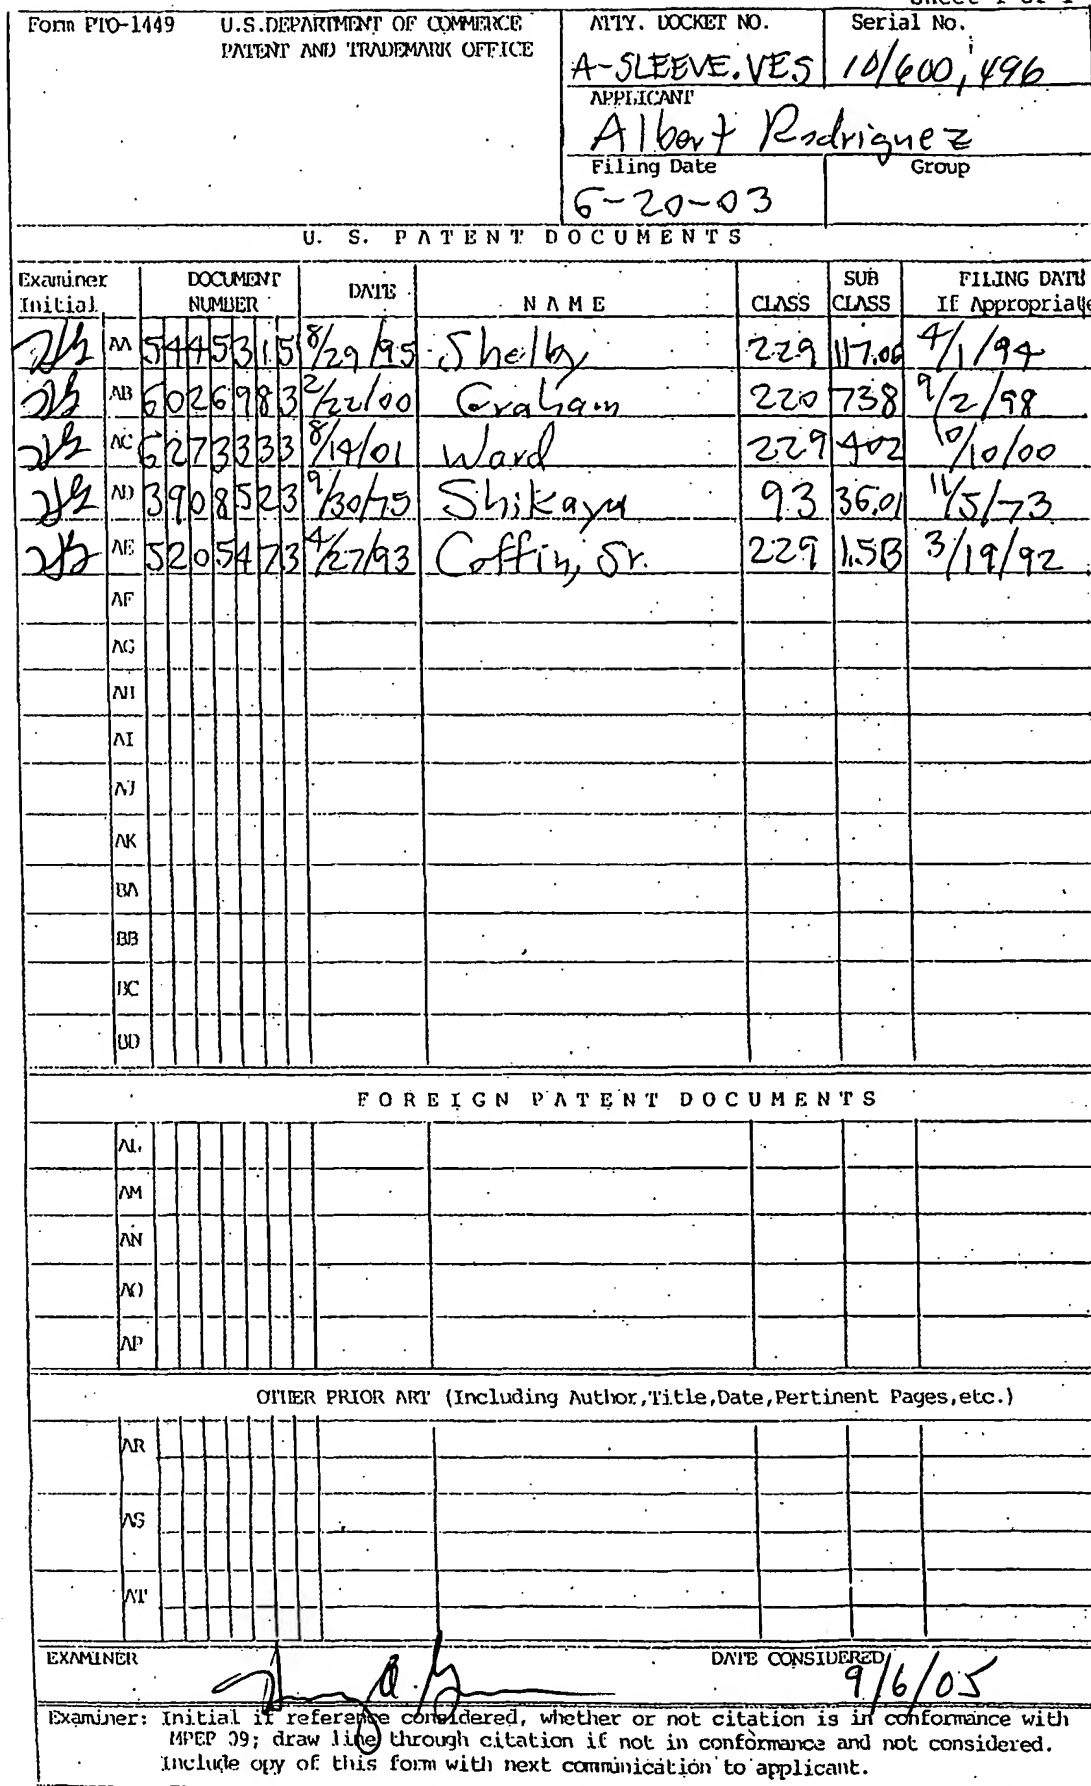 Sheet 1 of 1
Form PTO-1449 U.S.DEPARTMENT OF COMMERCE
PATENT AND TRADEMARK OFFICE
ATTY. DOCKET NO. Serial No.
A-SLEEVE.VES 10/600,496
APPLICANT
Albert Rodriguez
Filing Date Group
6-20-03
U. S. PATENT DOCUMENTS
Examiner Initial DOCUMENT NUMBER DATE NAME CLASS SUB CLASS FILING DATE If Appropriate
AA 5445315 8/29/95 Shelby 229 117.06 4/1/94
AB 6026983 2/22/00 Graham 220 738 9/2/98
AC 6273333 8/14/01 Ward 229 402 10/10/00
AD 3908523 9/30/75 Shikaya 93 36.01 11/5/73
AE 5205473 4/27/93 Coffin, Sr. 229 1.5B 3/19/92
AF
AG
AH
AI
AJ
AK
BA
BB
BC
BD
FOREIGN PATENT DOCUMENTS
AL
AM
AN
AO
AP
OTHER PRIOR ART (Including Author,Title,Date,Pertinent Pages,etc.)
AR
AS
AT
EXAMINER DATE CONSIDERED
9/6/05
Examiner: Initial if reference considered, whether or not citation is in conformance with
MPEP 09; draw line through citation if not in conformance and not considered.
Include opy of this form with next communication to applicant.